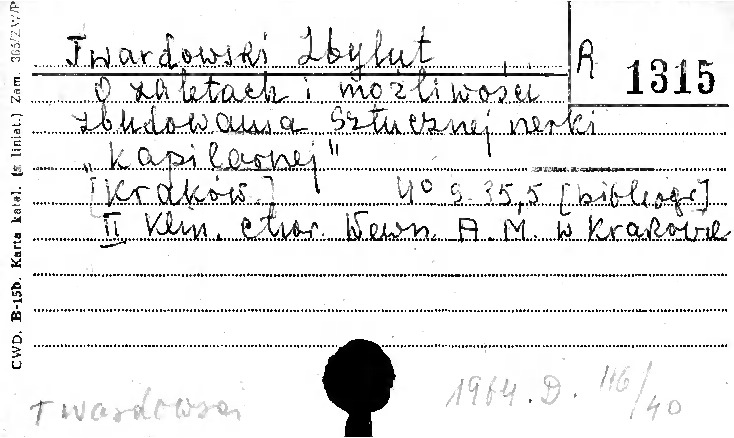 Twardowski Zbylut
R 1315
O zaletach i możliwości
zbudowania sztucznej nerki
„Kapilarnej"
[Kraków] 4° s. 35,5 [bibliogr]
II Klin. chor. Wewn. A. M. w Krakowie
Twardowski 1964. D. 116/40
CWD. B-15b. Karta katal. (z liniat.) Zam. 365/ZW/P